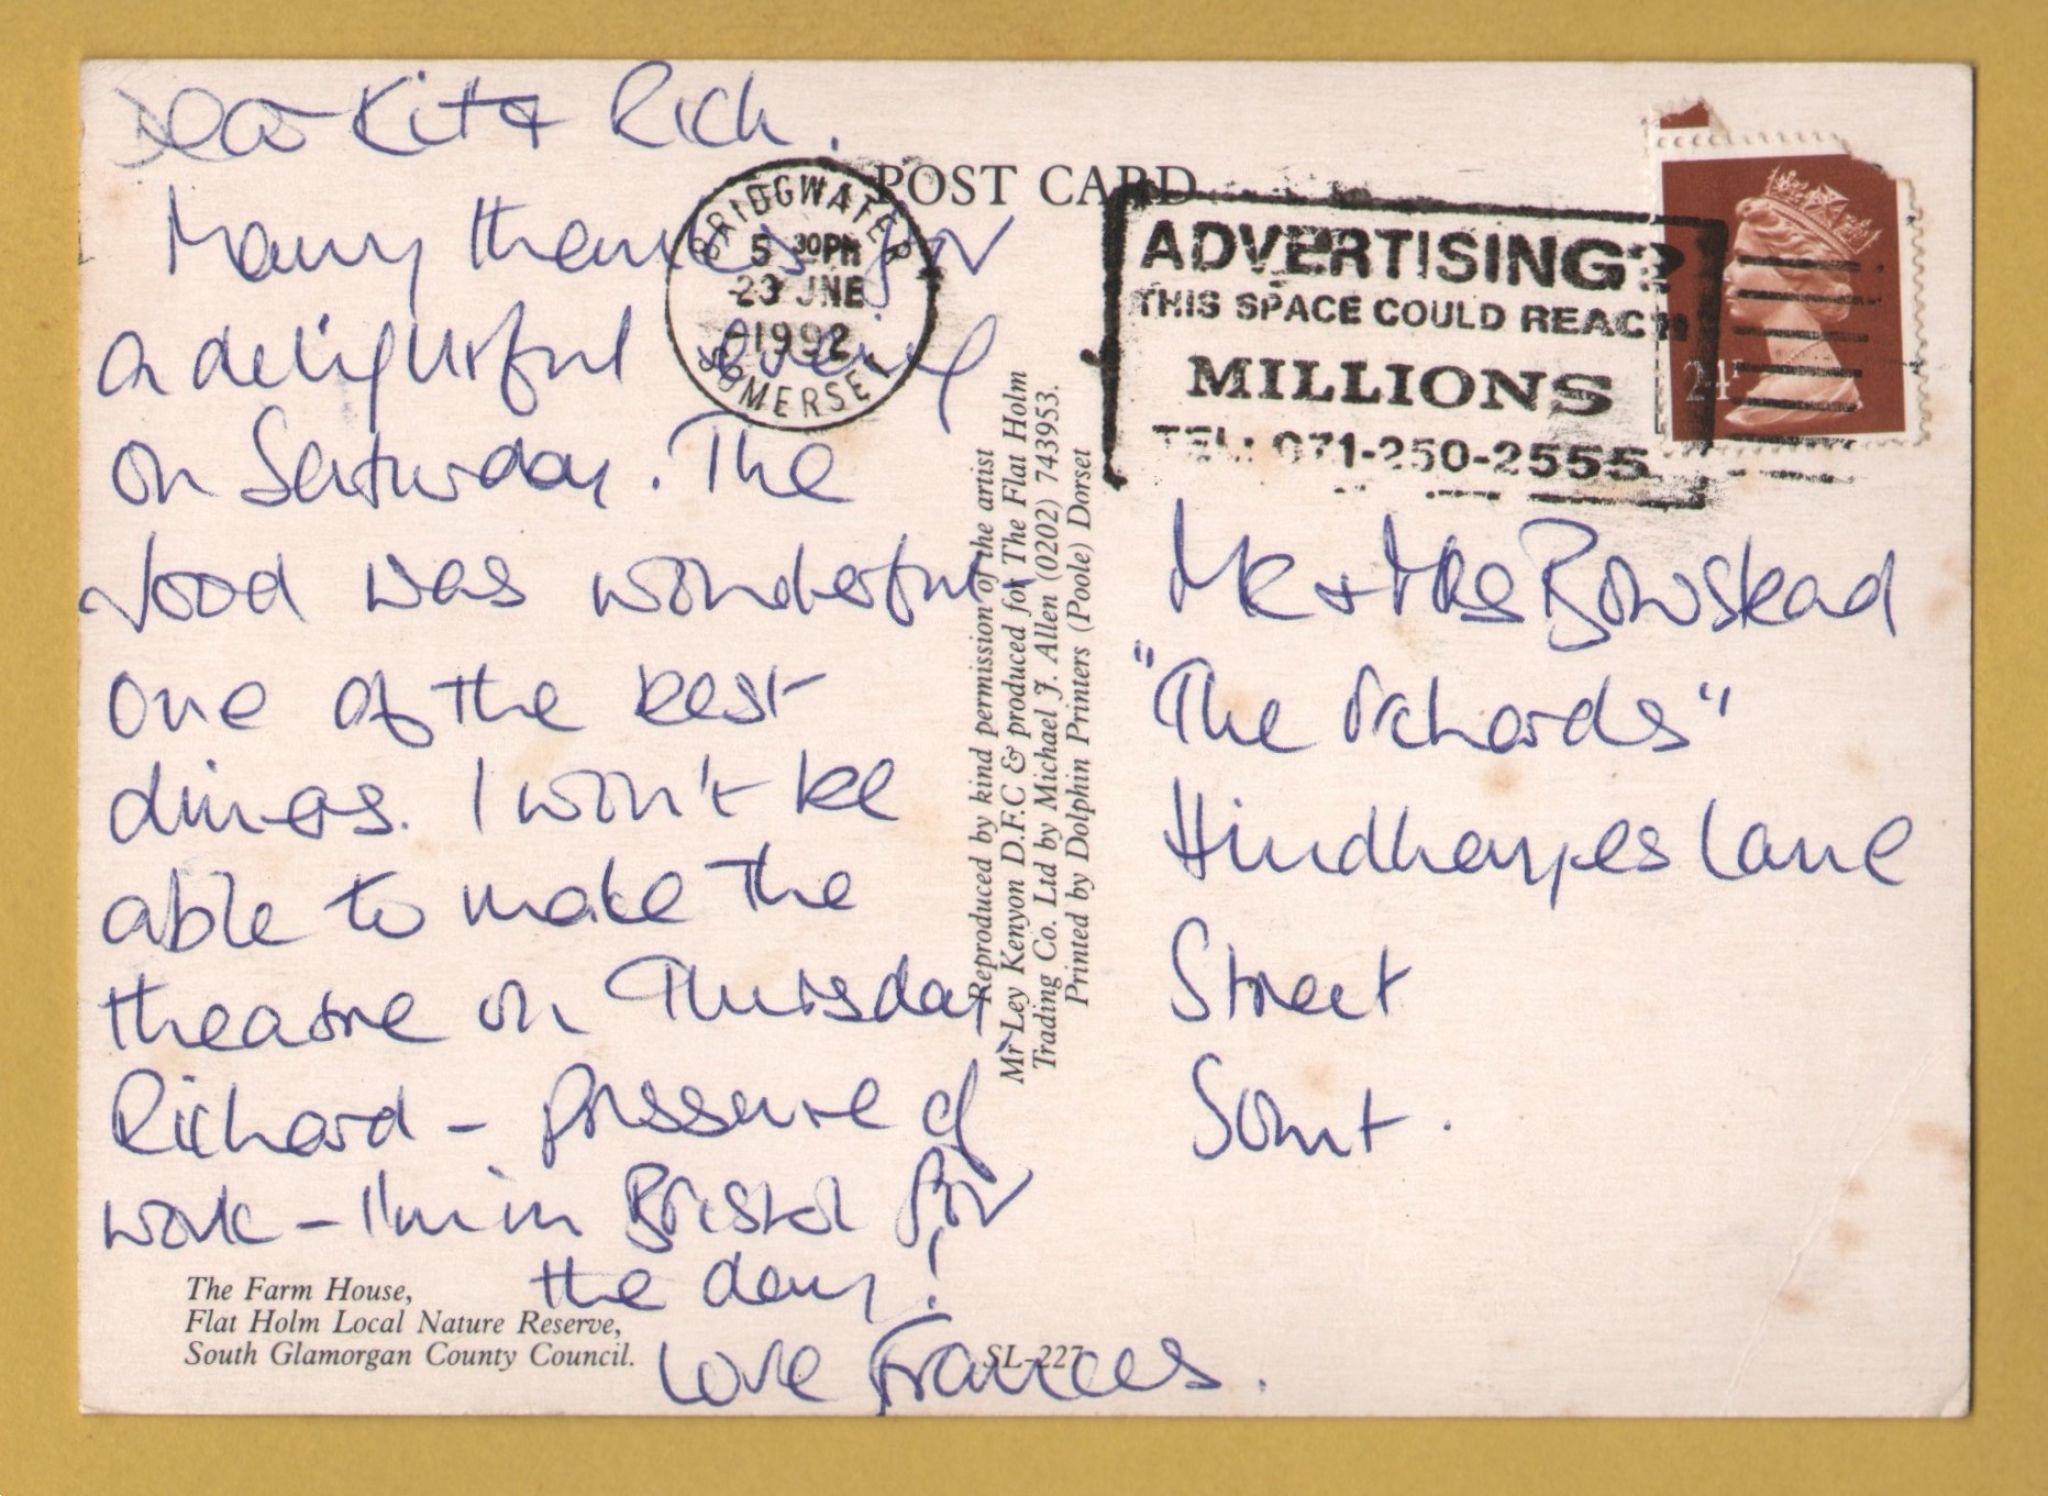 Dear Kit & Rich.
Many thanks for
a delightful evening
on Saturday. The
food was wonderful
one of the best
dinners. I won't be
able to make the
theatre on Thursday
Richard - pressure of
work - I'm in Bristol for
the day!
Love Frances.
The Farm House,
Flat Holm Local Nature Reserve,
South Glamorgan County Council.
SL-227
POST CARD
BRIDGWATER
5 30PM
23 JNE
1992
SOMERSET
ADVERTISING?
THIS SPACE COULD REACH
MILLIONS
TEL: 071-250-2555
24P
Reproduced by kind permission of the artist
Mr Ley Kenyon D.F.C & produced for The Flat Holm
Trading Co. Ltd by Michael J. Allen (0202) 743953.
Printed by Dolphin Printers (Poole) Dorset
Mr & Mrs Bowstead
"The Orchards"
Hindhayes Lane
Street
Somt.